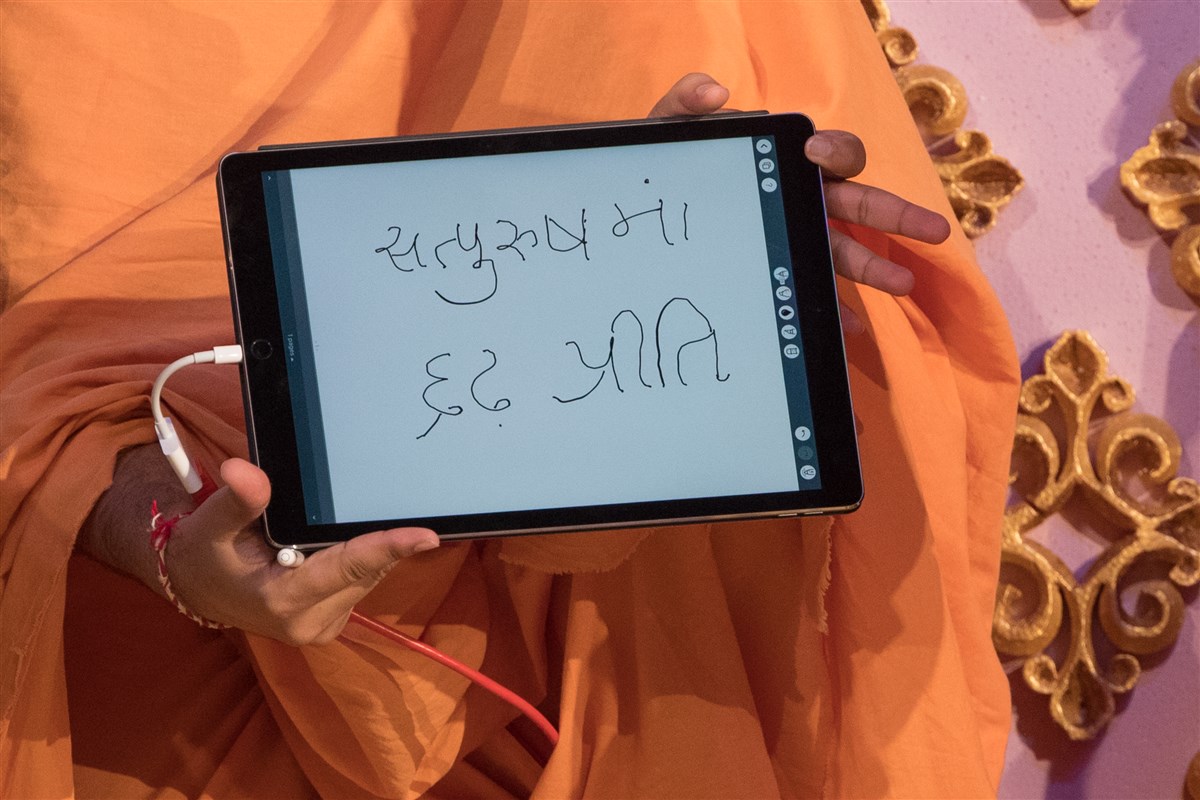 સત્પુરુષમાં
દૃઢ પ્રીતિ